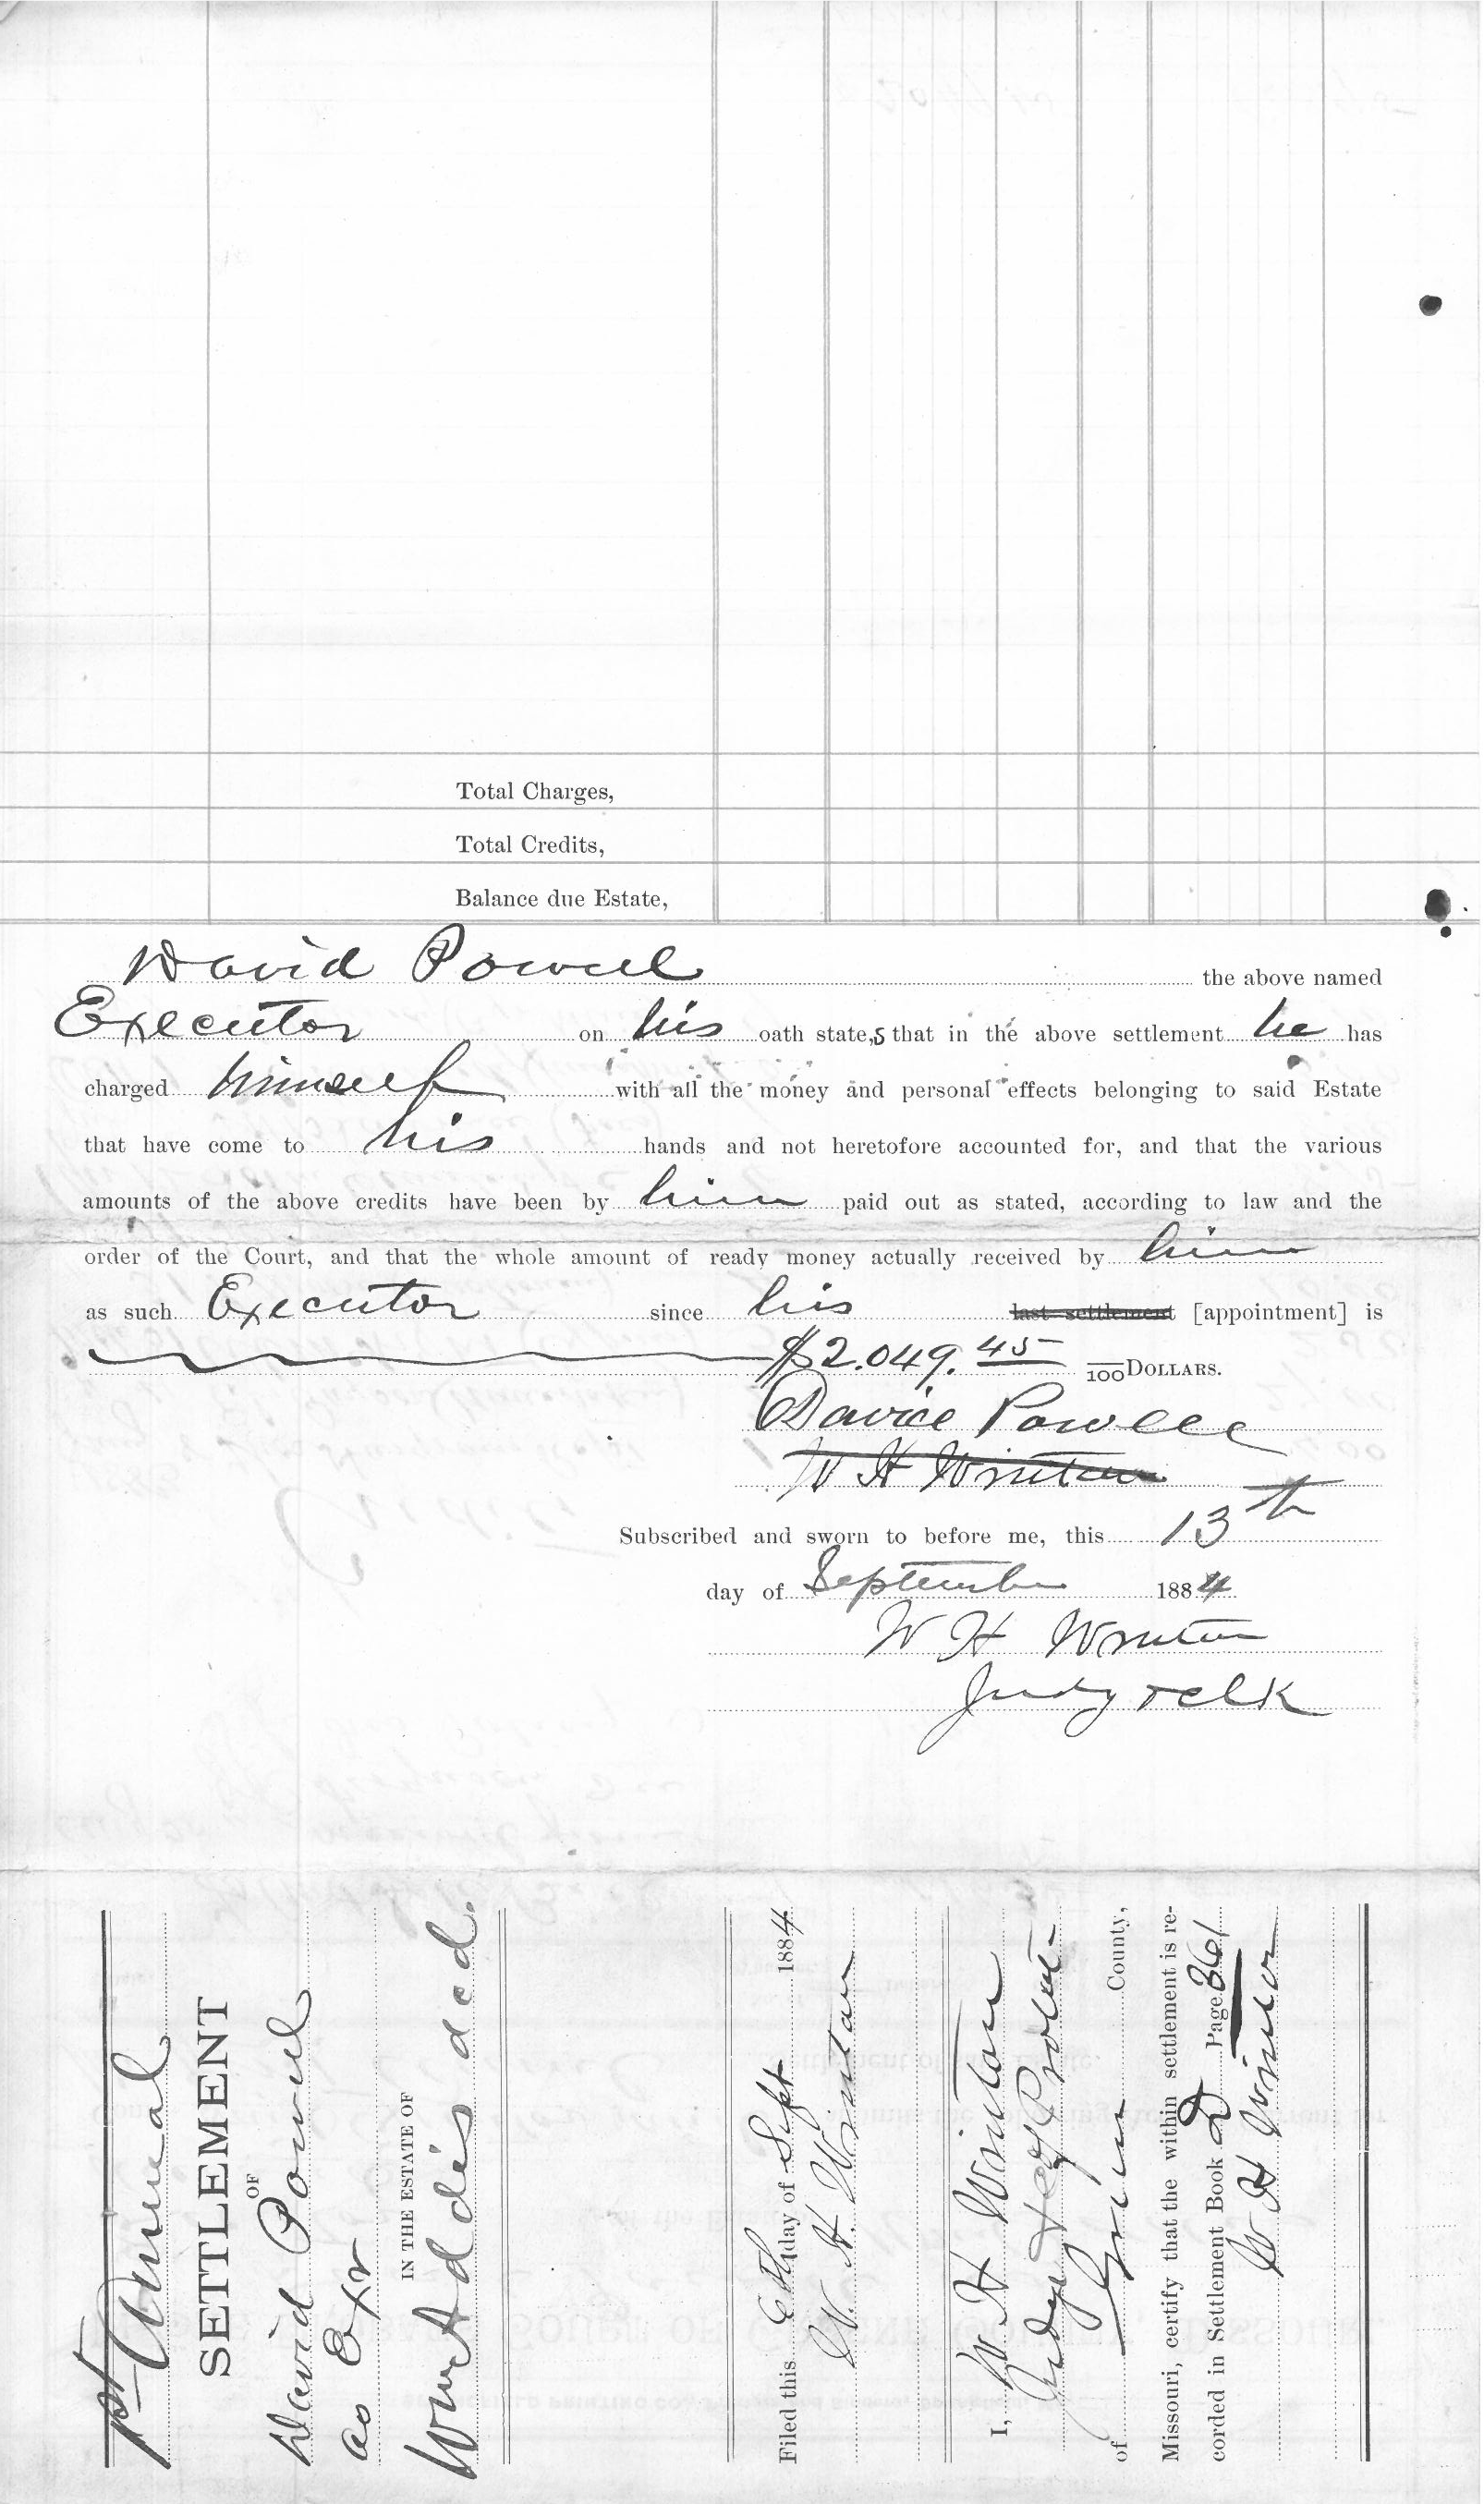 Total Charges,
Total Credits,
Balance due Estate,
David Powell the above named
Executor on his oath state,s that in the above settlement he has
charged himself with all the money and personal effects belonging to said Estate
that have come to his hands and not heretofore accounted for, and that the various
amounts of the above credits have been by him paid out as stated, according to law and the
order of the Court, and that the whole amount of ready money actually received by him
as such Executor since his last settlement [appointment] is
$2.049.45 /100 DOLLARS.
David Powell
W H Winton
Subscribed and sworn to before me, this 13th
day of September 1884
W H Winton
Judg
1st Annual
SETTLEMENT
OF
David Powell
as Exr
IN THE ESTATE OF
Wm Addis decd.
Filed this day of Sept 1884
W. H. Winton
I, W H Winton
Judge Probate
of Green County,
Missouri, certify that the within settlement is re-
corded in Settlement Book D Page 361
W H Winton